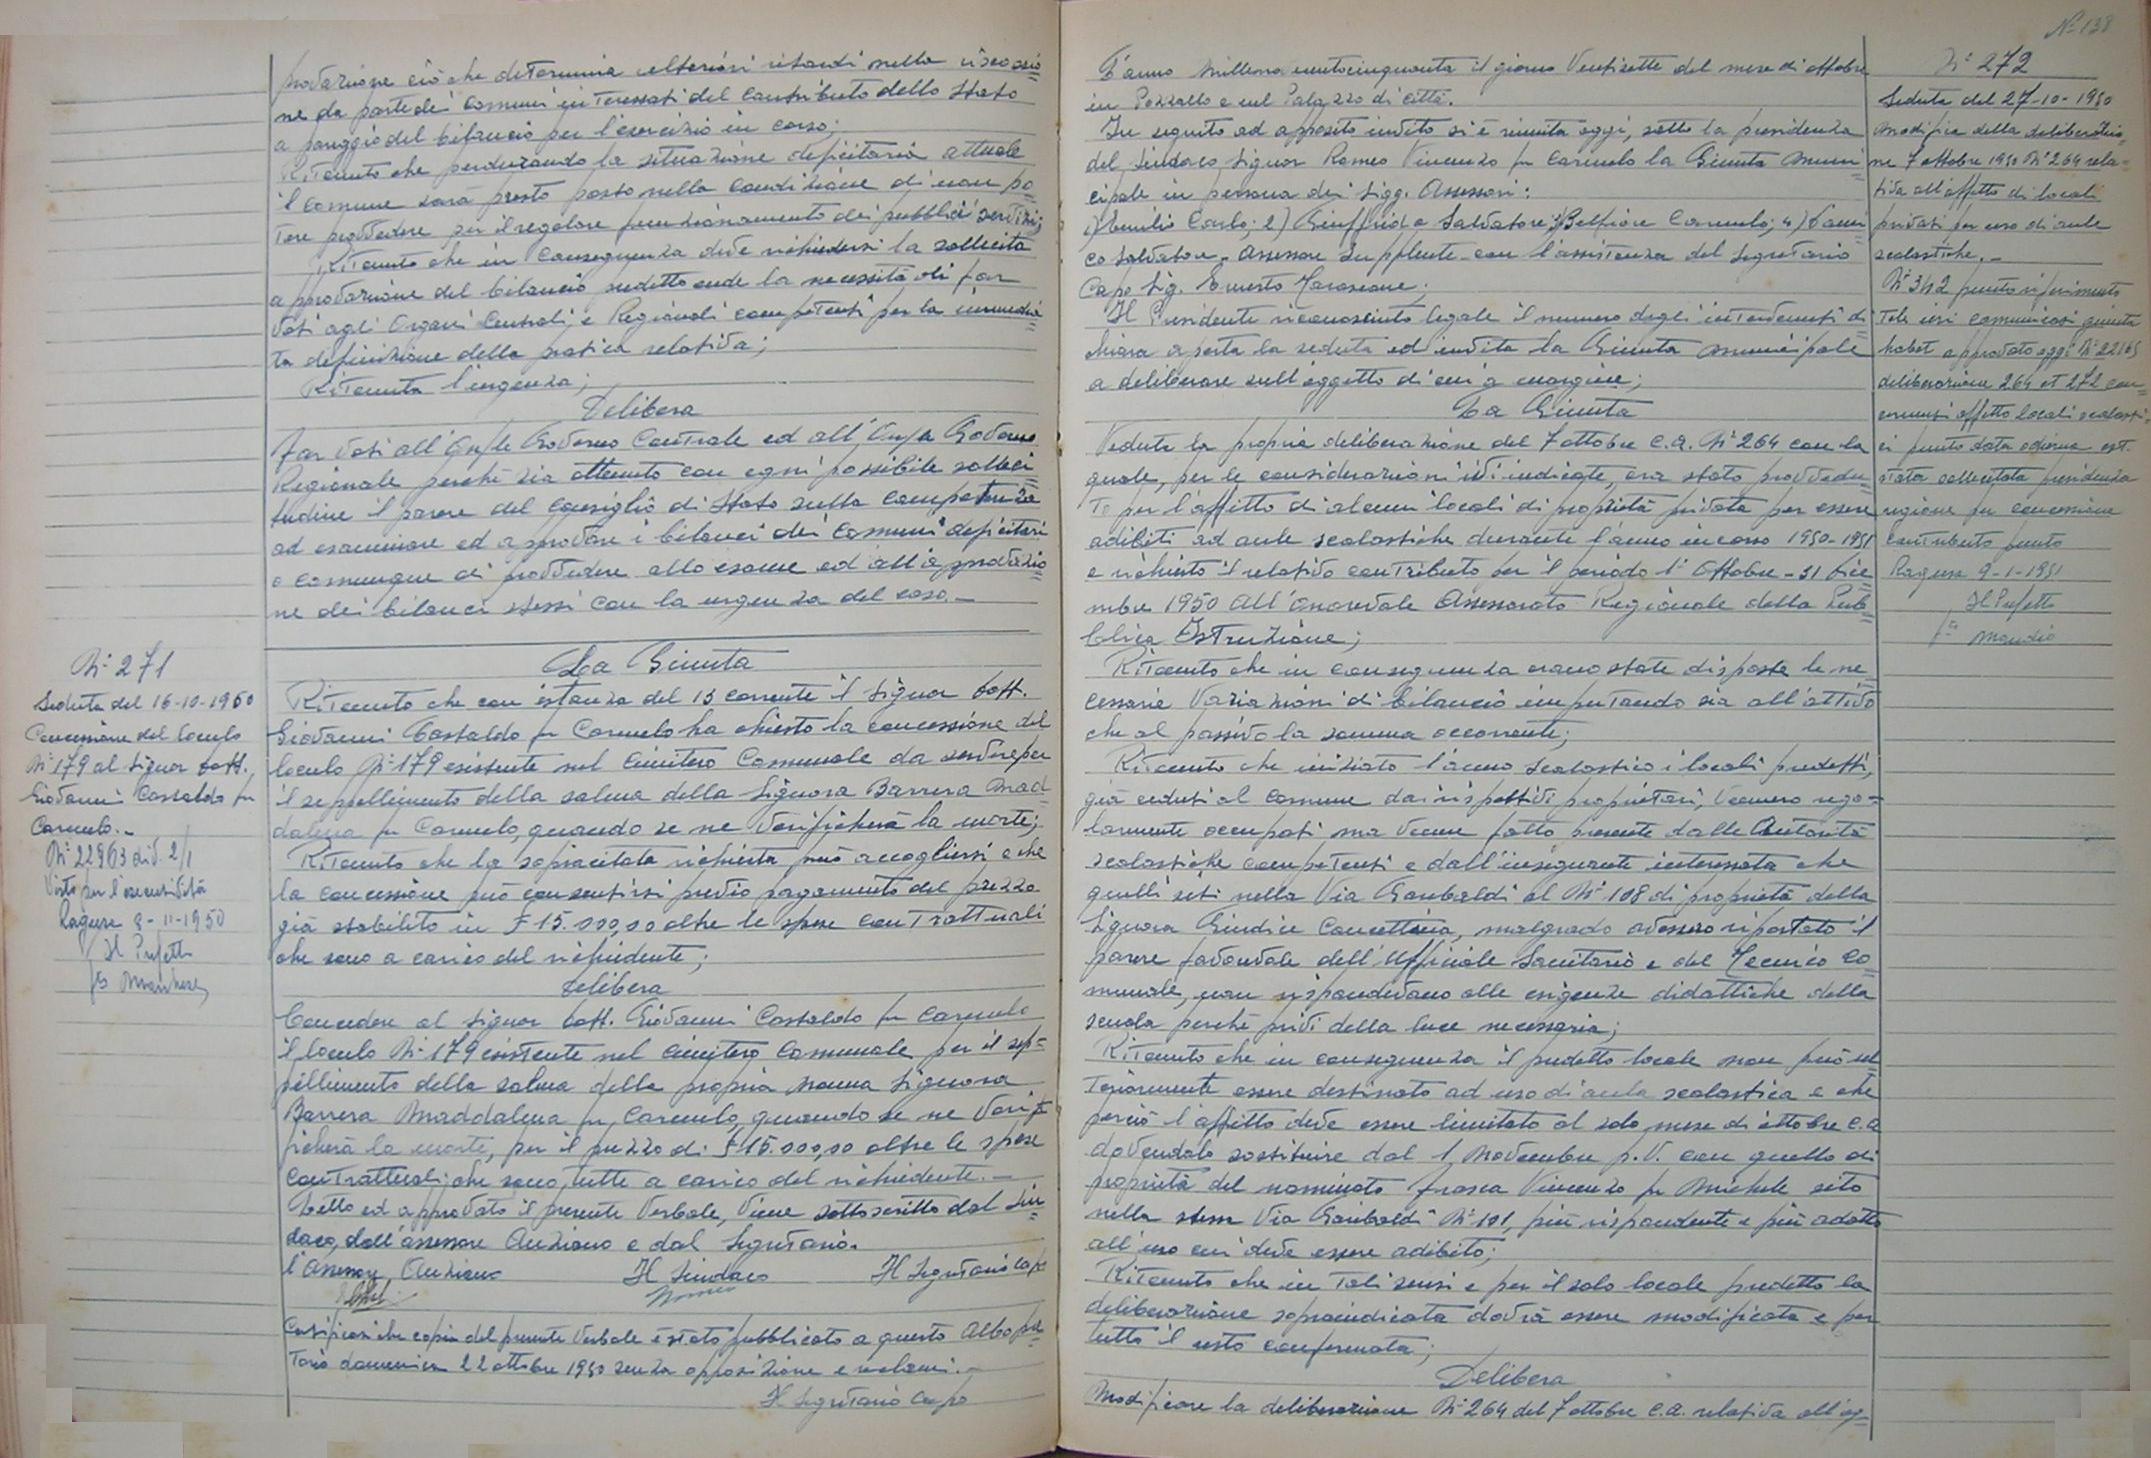 provazione ciò che determina ulteriori ritardi nella riscossio=
ne da parte dei Comuni interessati del contributo dello Stato
a pareggio del bilancio per l'esercizio in corso;
Ritenuto che perdurando la situazione deficitaria attuale
il Comune sarà presto posto nella condizione di non po=
tere provvedere per il regolare funzionamento dei pubblici servizi;
Ritenuto che in conseguenza deve richiedersi la sollecita
approvazione del bilancio suddetto onde la necessità di far
voti agli Organi Centrali e Regionali competenti per la immedia=
ta definizione della pratica relativa;
Ritenuta l'urgenza;
Delibera
Far voti all'On/le Governo Centrale ed all'On/le Governo
Regionale perché sia ottenuto con ogni possibile solleci=
tudine il parere del Consiglio di Stato sulla competenza
ad esaminare ed approvare i bilanci dei Comuni deficitari
o comunque di provvedere allo esame ed all'approvazio=
ne dei bilanci stessi con la urgenza del caso.-
N° 271
Seduta del 16-10-1950
Concessione del loculo
N° 179 al Signor Dott.
Giovanni Costaldo fu
Carmelo.-
N° 22963 div. 2/1
Visto per l'esecutività
Ragusa 8-11-1950
Il Prefetto
La Giunta
Ritenuto che con istanza del 13 corrente il Signor Dott.
Giovanni Costaldo fu Carmelo ha chiesto la concessione del
loculo N° 179 esistente nel Cimitero Comunale da servire per
il seppellimento della salma della Signora Barrera Mad=
dalena fu Carmelo, quando se ne verificherà la morte;
Ritenuto che la sopracitata richiesta può accogliersi e che
la concessione può consentirsi previo pagamento del prezzo
già stabilito in £ 15.000,00 oltre le spese contrattuali
che sono a carico del richiedente;
Delibera
Concedere al Signor Dott. Giovanni Costaldo fu Carmelo
il loculo N° 179 esistente nel Cimitero Comunale per il sep=
pellimento della salma della propria mamma Signora
Barrera Maddalena fu Carmelo, quando se ne veri=
ficherà la morte, per il prezzo di £ 15.000,00 oltre le spese
contrattuali che sono tutte a carico del richiedente.-
Letto ed approvato il presente Verbale, viene sottoscritto dal Sin=
daco, dall'assessore Anziano e dal Segretario.
l'Assessore Anziano Il Sindaco Il Segretario Capo
Romeo
Certificasi che copia del presente Verbale è stato pubblicato a questo Albo pre=
torio domenica 22 ottobre 1950 senza opposizione e reclami.-
Il Segretario Capo
N° 138
L'anno millenovecentocinquanta il giorno Ventisette del mese di ottobre
in Pozzallo e nel Palazzo di città.
In seguito ad apposito invito si è riunita oggi, sotto la presidenza
del Sindaco Signor Romeo Vincenzo fu Carmelo la Giunta Muni=
cipale in persona dei Sigg. Assessori:
1) Emilio Carlo; 2) Giuffrida Salvatore; 3) Belfiore Carmelo; 4)
co Salvatore - Assessore Supplente - con l'assistenza del Segretario
Capo Sig. Ernesto
Il Presidente riconosciuto legale il numero degli intervenuti di=
chiara aperta la seduta ed invita la Giunta Municipale
a deliberare sull'oggetto di cui a margine;
La Giunta
Veduta la propria deliberazione del 7 ottobre c.a. N° 264 con la
quale, per le considerazioni ivi indicate, era stato provvedu=
to per l'affitto di alcuni locali di proprietà privata per essere
adibiti ad aule scolastiche durante l'anno in corso 1950-1951
e richiesto il relativo contributo per il periodo 1° Ottobre-31 Dice=
mbre 1950 all'Onorevole Assessorato Regionale della Pub=
blica Istruzione;
Ritenuto che in conseguenza erano state disposte le ne=
cessarie variazioni di bilancio imputando sia all'attivo
che al passivo la somma occorrente;
Ritenuto che iniziato l'anno scolastico i locali predetti,
già ceduti al Comune dai rispettivi proprietari, vennero rego=
larmente occupati ma venne fatto presente dalle Autorità
scolastiche competenti e dall'insegnante interessata che
quelli siti nella Via Garibaldi al N° 108 di proprietà della
Signora Giudice Concettina, malgrado avessero riportato il
parere favorevole dell'Ufficiale Sanitario e del Tecnico Co=
munale, non rispondevano alle esigenze didattiche della
scuola perché privi della luce necessaria;
Ritenuto che in conseguenza il predetto locale non può ul=
teriormente essere destinato ad uso di aula scolastica e che
perciò l'affitto deve essere limitato al solo mese di ottobre c.a
dovendolo sostituire dal 1 Novembre p.v. con quello di
proprietà del nominato Frasca Vincenzo fu Michele sito
nella stessa Via Garibaldi N° 101, più rispondente e più adatto
all'uso cui deve essere adibito;
Ritenuto che in tali sensi e per il solo locale predetto la
deliberazione sopraindicata dovrà essere modificata e per
tutto il resto confermata;
Delibera
Modificare la deliberazione N° 264 del 7 ottobre c.a. relativa all'af=
N° 272
Seduta del 27-10-1950
Modifica della deliberazio=
ne 7 ottobre 1950 N° 264 rela=
tiva all'affitto di locali
privati per uso di aule
scolastiche.-
N° 342 punto riferimento
Tele ieri comunicasi giunta
habet approvato oggi N° 22165
deliberazione 264 et 272 con=
cernenti affitto locali scolasti=
ci punto data odierna est
stata sollecitata presidenza
regione per concessione
contributo punto
Ragusa 9-1-1951
Il Prefetto